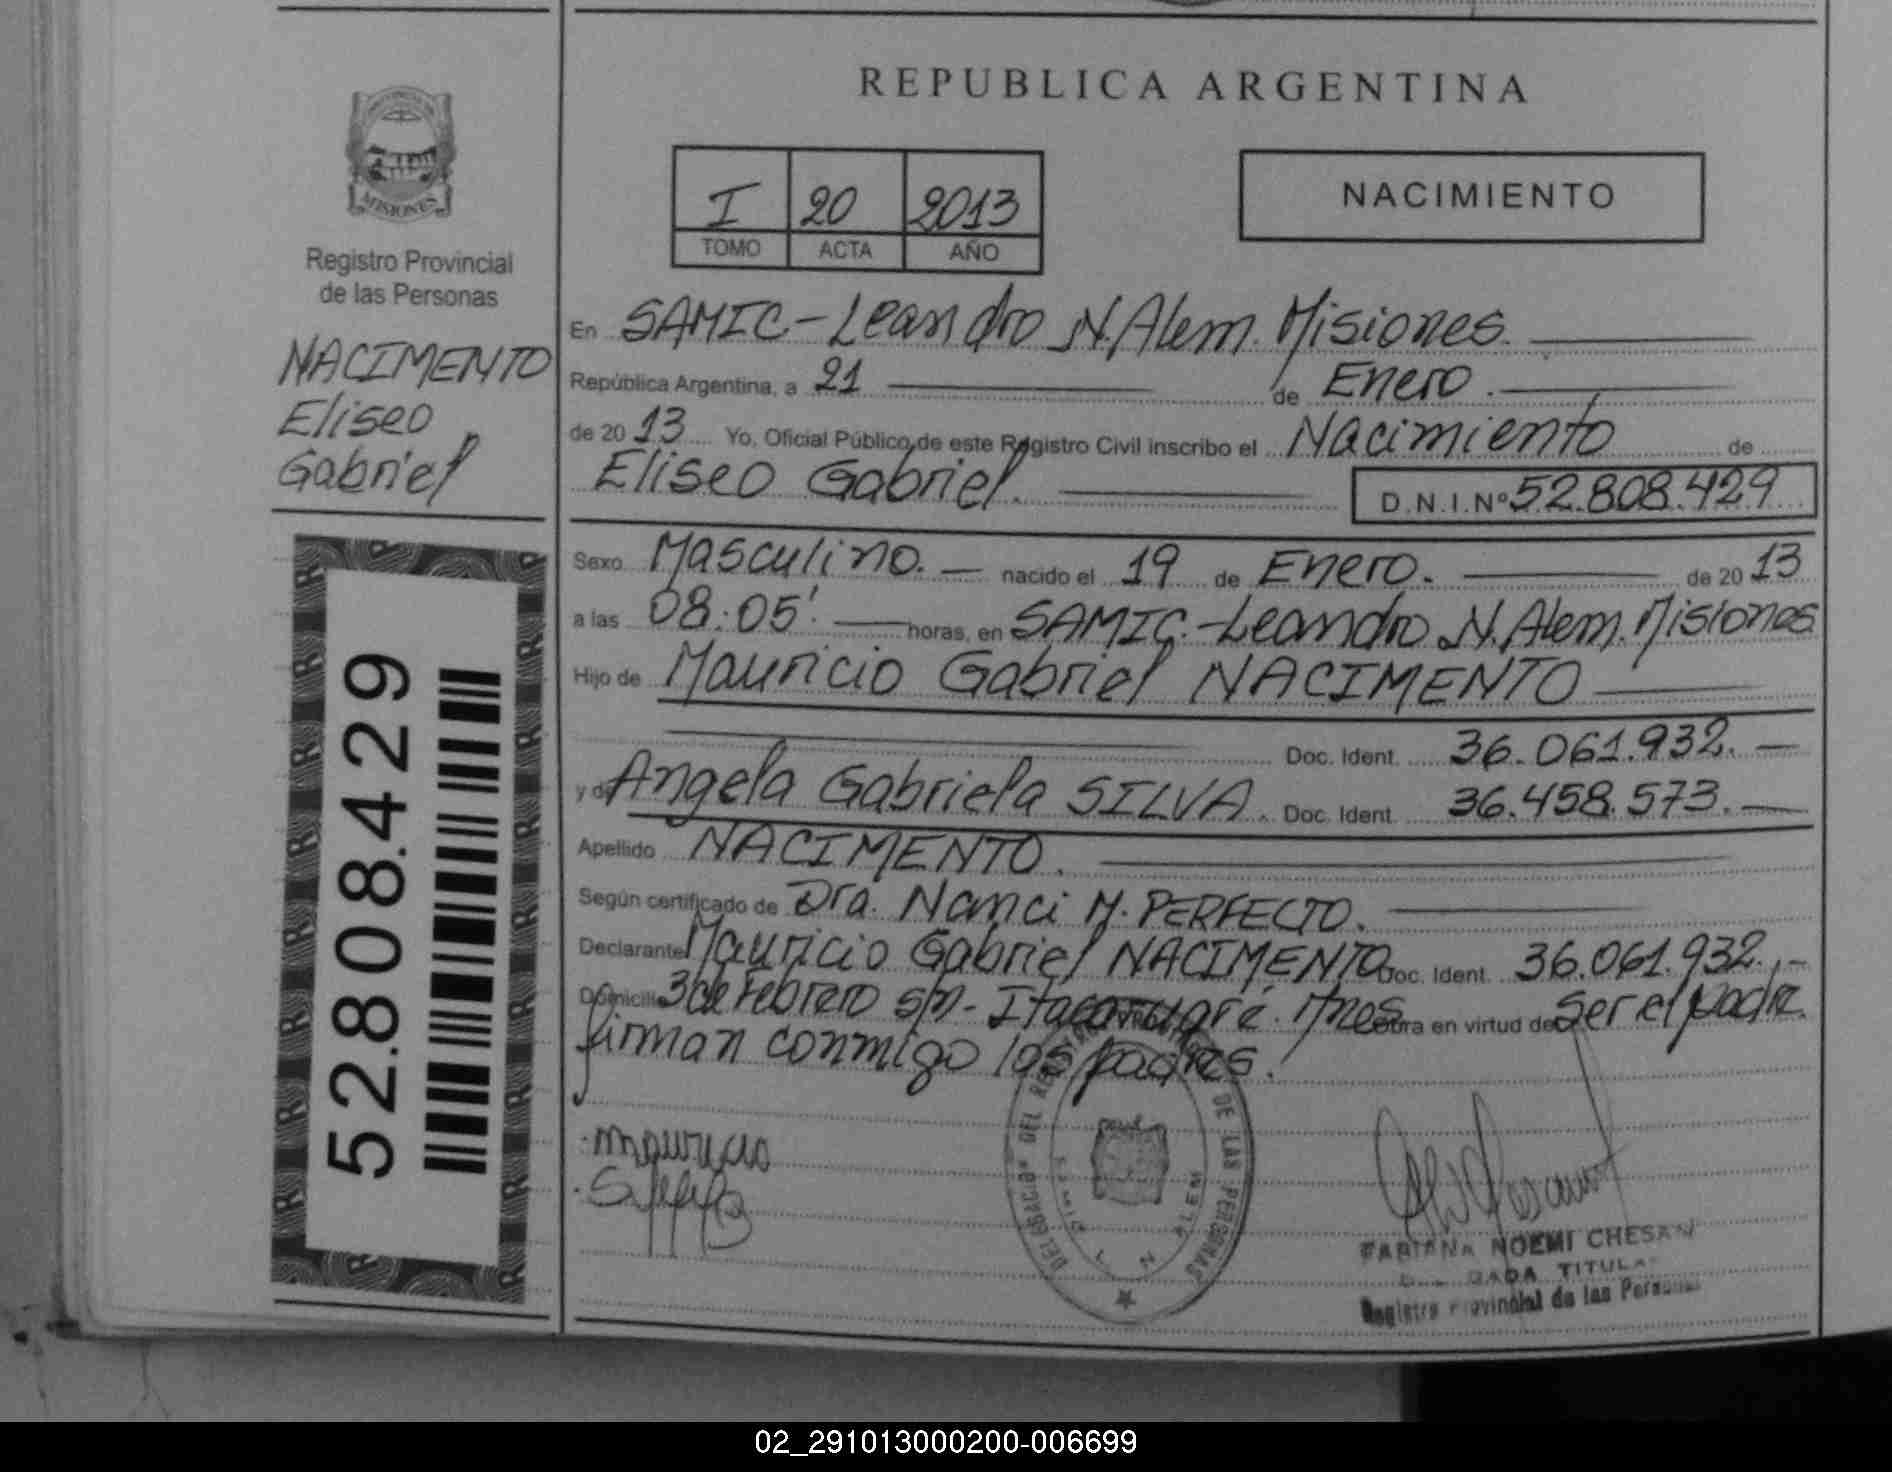 REPUBLICA ARGENTINA
PROVINCIA DE
MISIONES
Registro Provincial
de las Personas
NACIMENTO
Eliseo
Gabriel
52.808.429
I 20 2013
TOMO ACTA AÑO
NACIMIENTO
En SAMIC-Leandro N. Alem. Misiones.
República Argentina, a 21 de Enero.
de 20 13 Yo, Oficial Público, de este Registro Civil inscribo el Nacimiento de
Eliseo Gabriel. D.N.I.Nº 52.808.429
Sexo Masculino. nacido el 19 de Enero. de 20 13
a las 08:05'. horas, en SAMIC.-Leandro N. Alem. Misiones
Hijo de Mauricio Gabriel NACIMENTO
Doc. Ident. 36.061.932.
y de Angela Gabriela SILVA. Doc. Ident. 36.458.573.
Apellido NACIMENTO.
Según certificado de Dra. Nanci M. PERFECTO.
Declarante Mauricio Gabriel NACIMENTO Doc. Ident. 36.061.932.
Domicilio 3 de Febrero s/n - Itacaruaré. Mnes Obra en virtud de Ser el padre.
firman conmigo los padres.
Mauricio
DE LAS PERSONAS
L N ALEM
FABIANA NOEMI CHESANI
TITULAR
Registro Provincial de las Personas
02_291013000200-006699